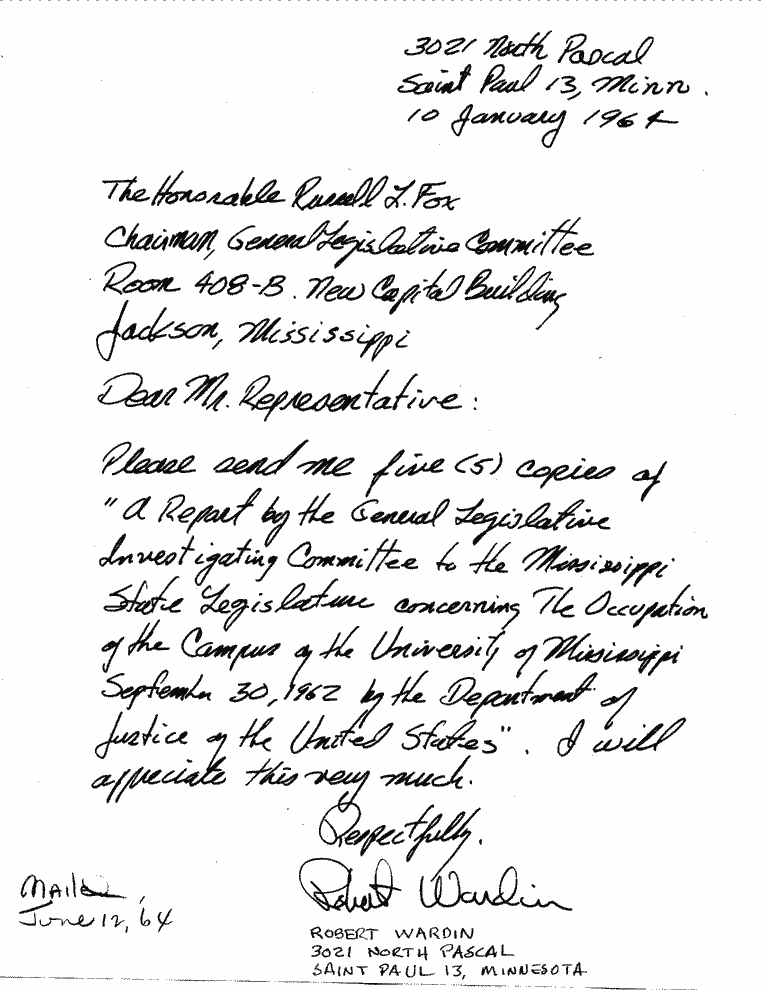 3021 North Pascal
Saint Paul 13, Minn.
10 January 1964
The Honorable Russell L. Fox
Chairman, General Legislative Committee
Room 408-B. New Capital Building
Jackson, Mississippi
Dear Mr. Representative:
Please send me five (5) copies of
"A Report by the General Legislative
Investigating Committee to the Mississippi
State Legislature concerning The Occupation
of the Campus of the University of Mississippi
September 30, 1962 by the Department of
Justice of the United States". I will
appreciate this very much.
Respectfully.
Robert Wardin
Mailed,
June 12, 64
ROBERT WARDIN
3021 NORTH PASCAL
SAINT PAUL 13, MINNESOTA